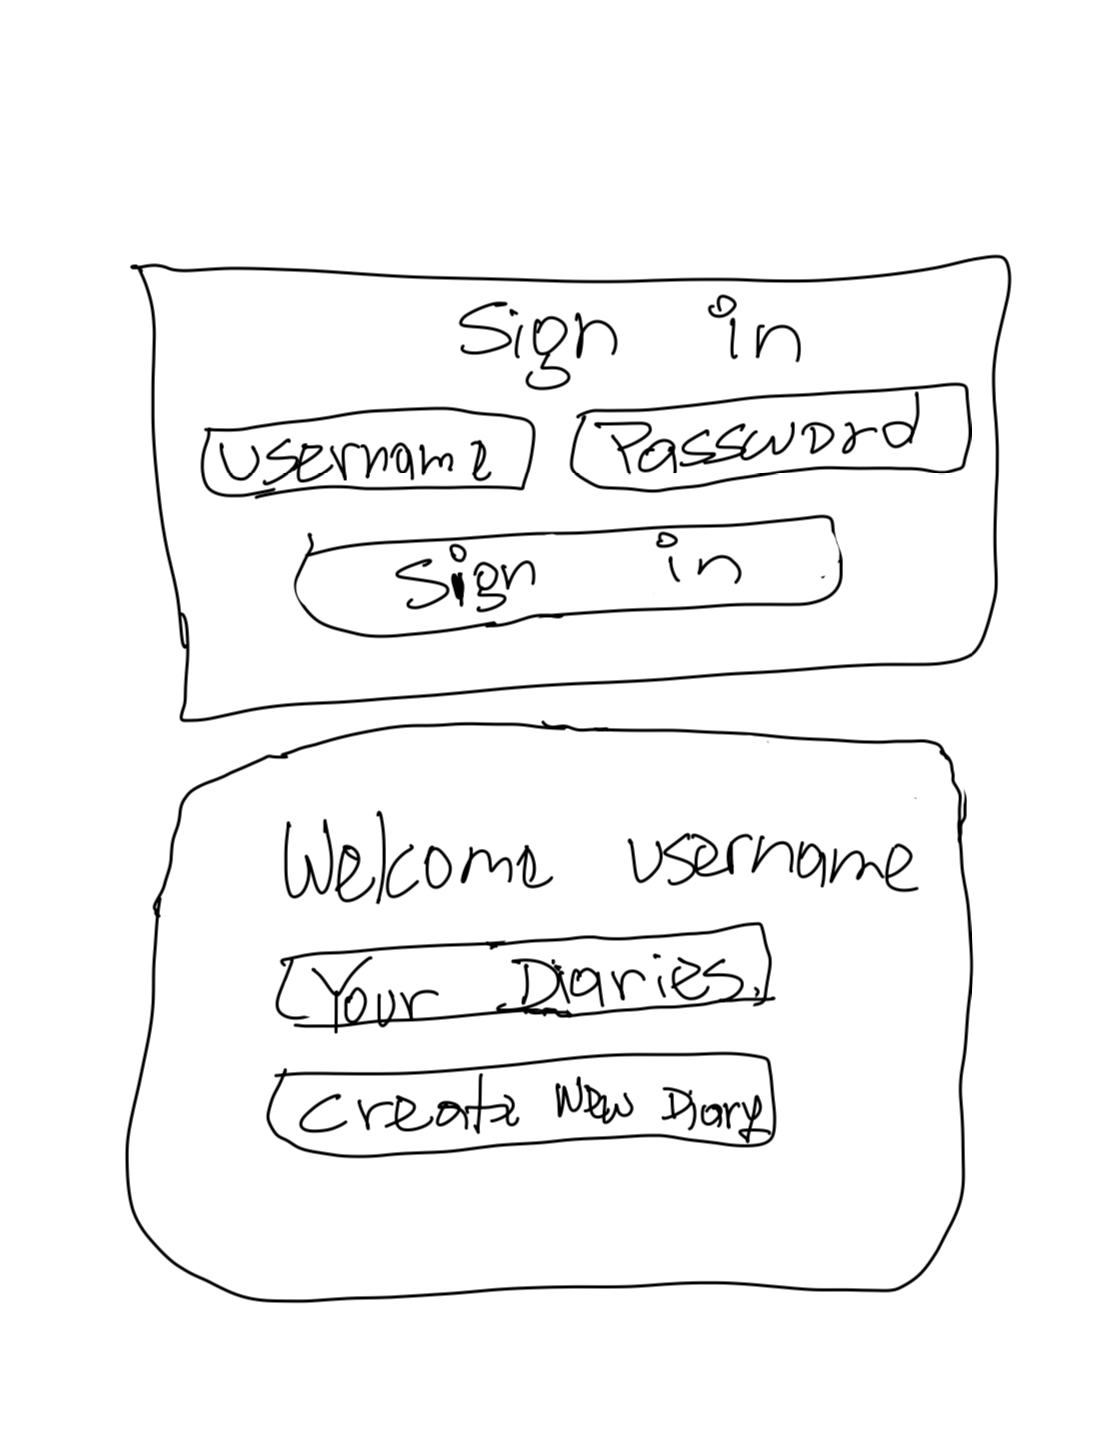 Sign in
Username Password
Sign in
Welcome username
Your Diaries.
Create New Diary